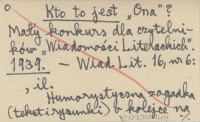 o
Kto to jest „Ona"?
Mały konkurs dla czytelni-
ków „Wiadomości Literackich".
1939. — Wiad. Lit. 16, nr 6:
, il.
Humorystyczna zagadka
(tekst i rysunki) o kolejce na